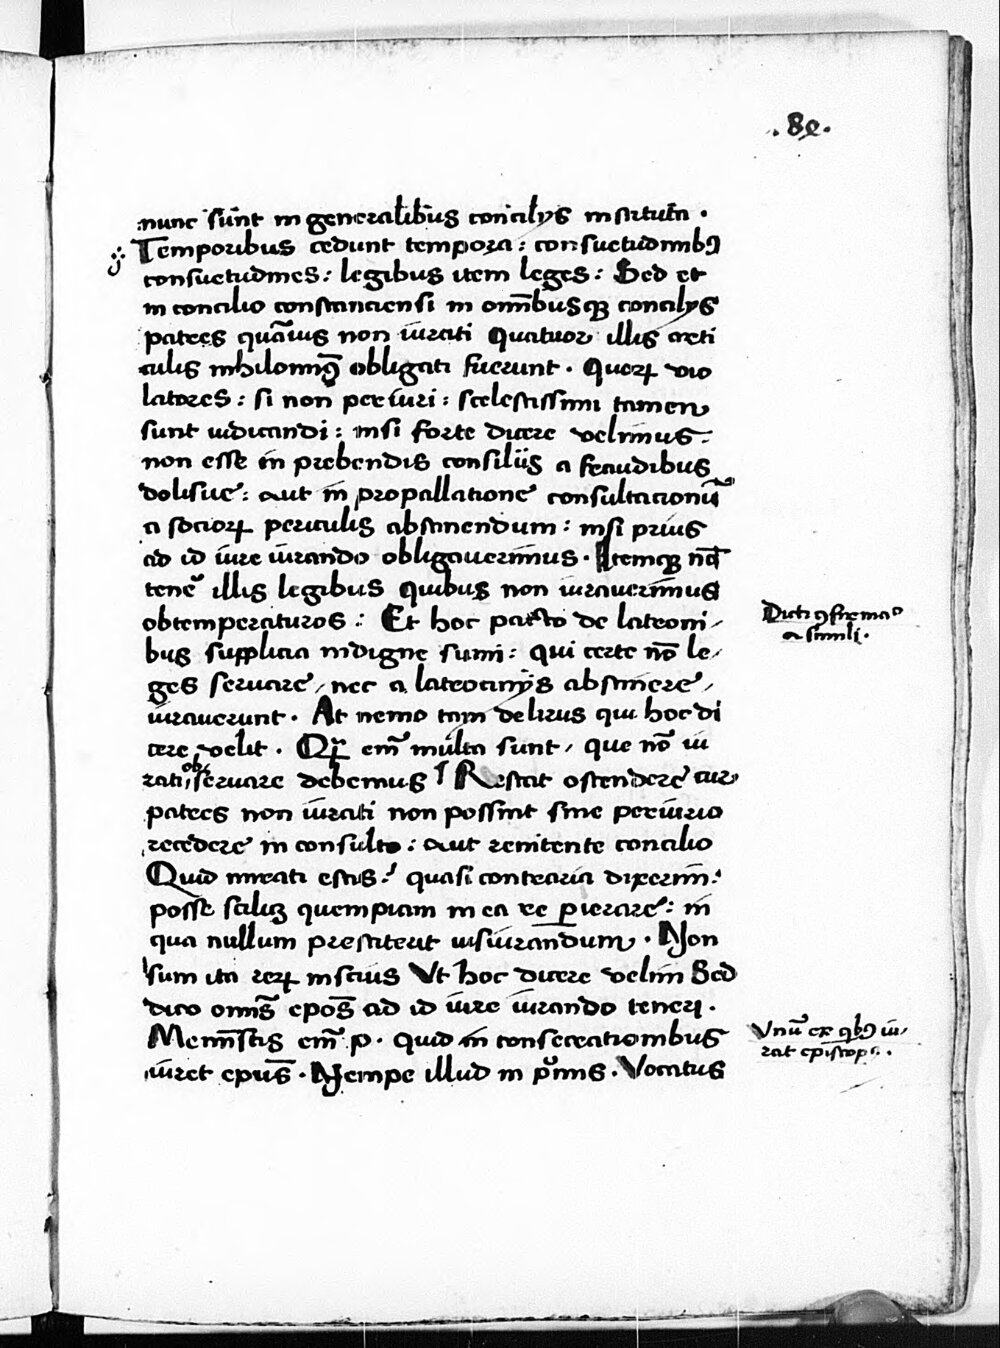 . 8e.
nunc sūnt in generalibus concilijs instituta .
Temporibus cedunt tempora : consuetudinibꝯ
consuetudines : legibus item leges : Sed et
in concilio constanciensi in om̄ibusqꝫ concilijs
patres quāuis non iurati Quatuor illis arti
culis nihilominꝯ obligati fuerunt . Quoꝝ vio
latores : si non periuri : scelestissimi tamen
sunt iudicandi : nisi forte dicere velimus :
non esse in prebendis consilijs a fraudibus
dolisue : aut in propallatione consultacionū
a socioꝝ periculis abstinendum : nisi prius
ad id iure iurando obligauerimus . Itemqꝫ
tene᷑ illis legibus quibus non iurauerimus
obtemperaturos : Et hoc pacto de latroni
bus supplicia indigne sumi : qui certe nō le
ges seruare / nec a latrocinijs abstinere /
iurauerunt . At nemo tam delirus qui hoc di
cere velit . em̄ multa sunt / que nō iu
rati obseruare debemus Restat ostendere cur
patres non iurati non possint sine periurio
recedere in consulto : aut renitente concilio
Quid mirati estis ? quasi contraria dixerim :
posse scilicꝫ quempiam in ea re ꝑierare : in
qua nullum prestiterit iusiurandum . Non
sum ita reꝝ inscius Vt hoc dicere velim Sed
dico omn̄s ep̄os ad id iure iurando teneri .
Memīistis em̄ p . quid in consecrationibus
iuret ep̄us . Nempe illud in p̄mis . Vocatus
Dicti ꝯfirmaᵒ
a simili .
Vnū ex qbꝯ iu/
rat episcopꝯ .